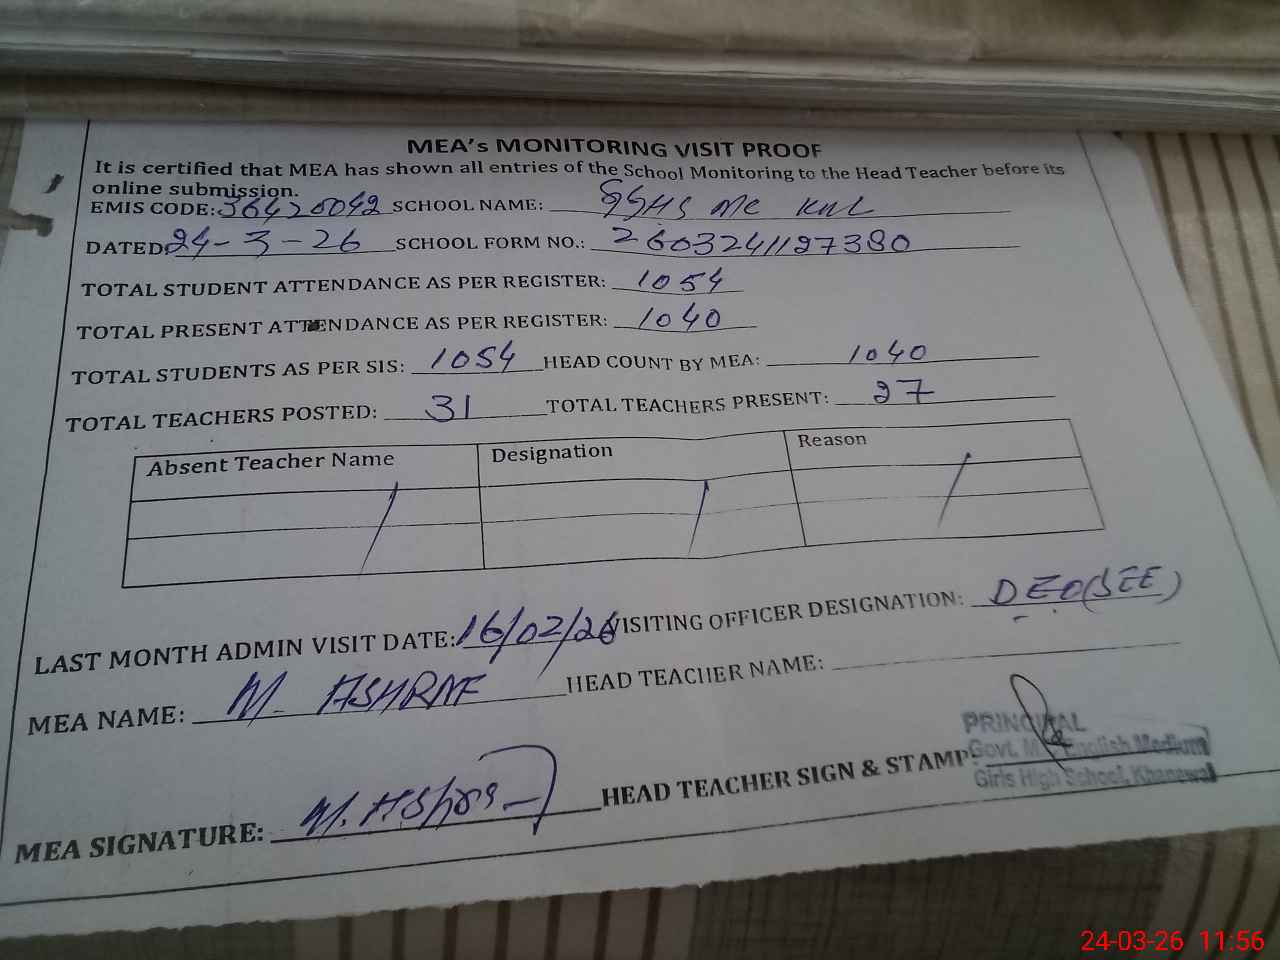 MEA's MONITORING VISIT PROOF
It is certified that MEA has shown all entries of the School Monitoring to the Head Teacher before its
online submission.
EMIS CODE: 36420042 SCHOOL NAME: GGHS MC KWL
DATED: 24-3-26 SCHOOL FORM NO.: 2603241127380
TOTAL STUDENT ATTENDANCE AS PER REGISTER: 1054
TOTAL PRESENT ATTENDANCE AS PER REGISTER: 1040
TOTAL STUDENTS AS PER SIS: 1054 HEAD COUNT BY MEA: 1040
TOTAL TEACHERS POSTED: 31 TOTAL TEACHERS PRESENT: 27
Absent Teacher Name Designation Reason
LAST MONTH ADMIN VISIT DATE: 16/02/26 VISITING OFFICER DESIGNATION: DEO(SEE)
MEA NAME: M. ASHRAF HEAD TEACHER NAME:
PRINCIPAL
Govt. M.C English Medium
Girls High School, Khanewal
MEA SIGNATURE: M. Ashraf HEAD TEACHER SIGN & STAMP:
24-03-26 11:56